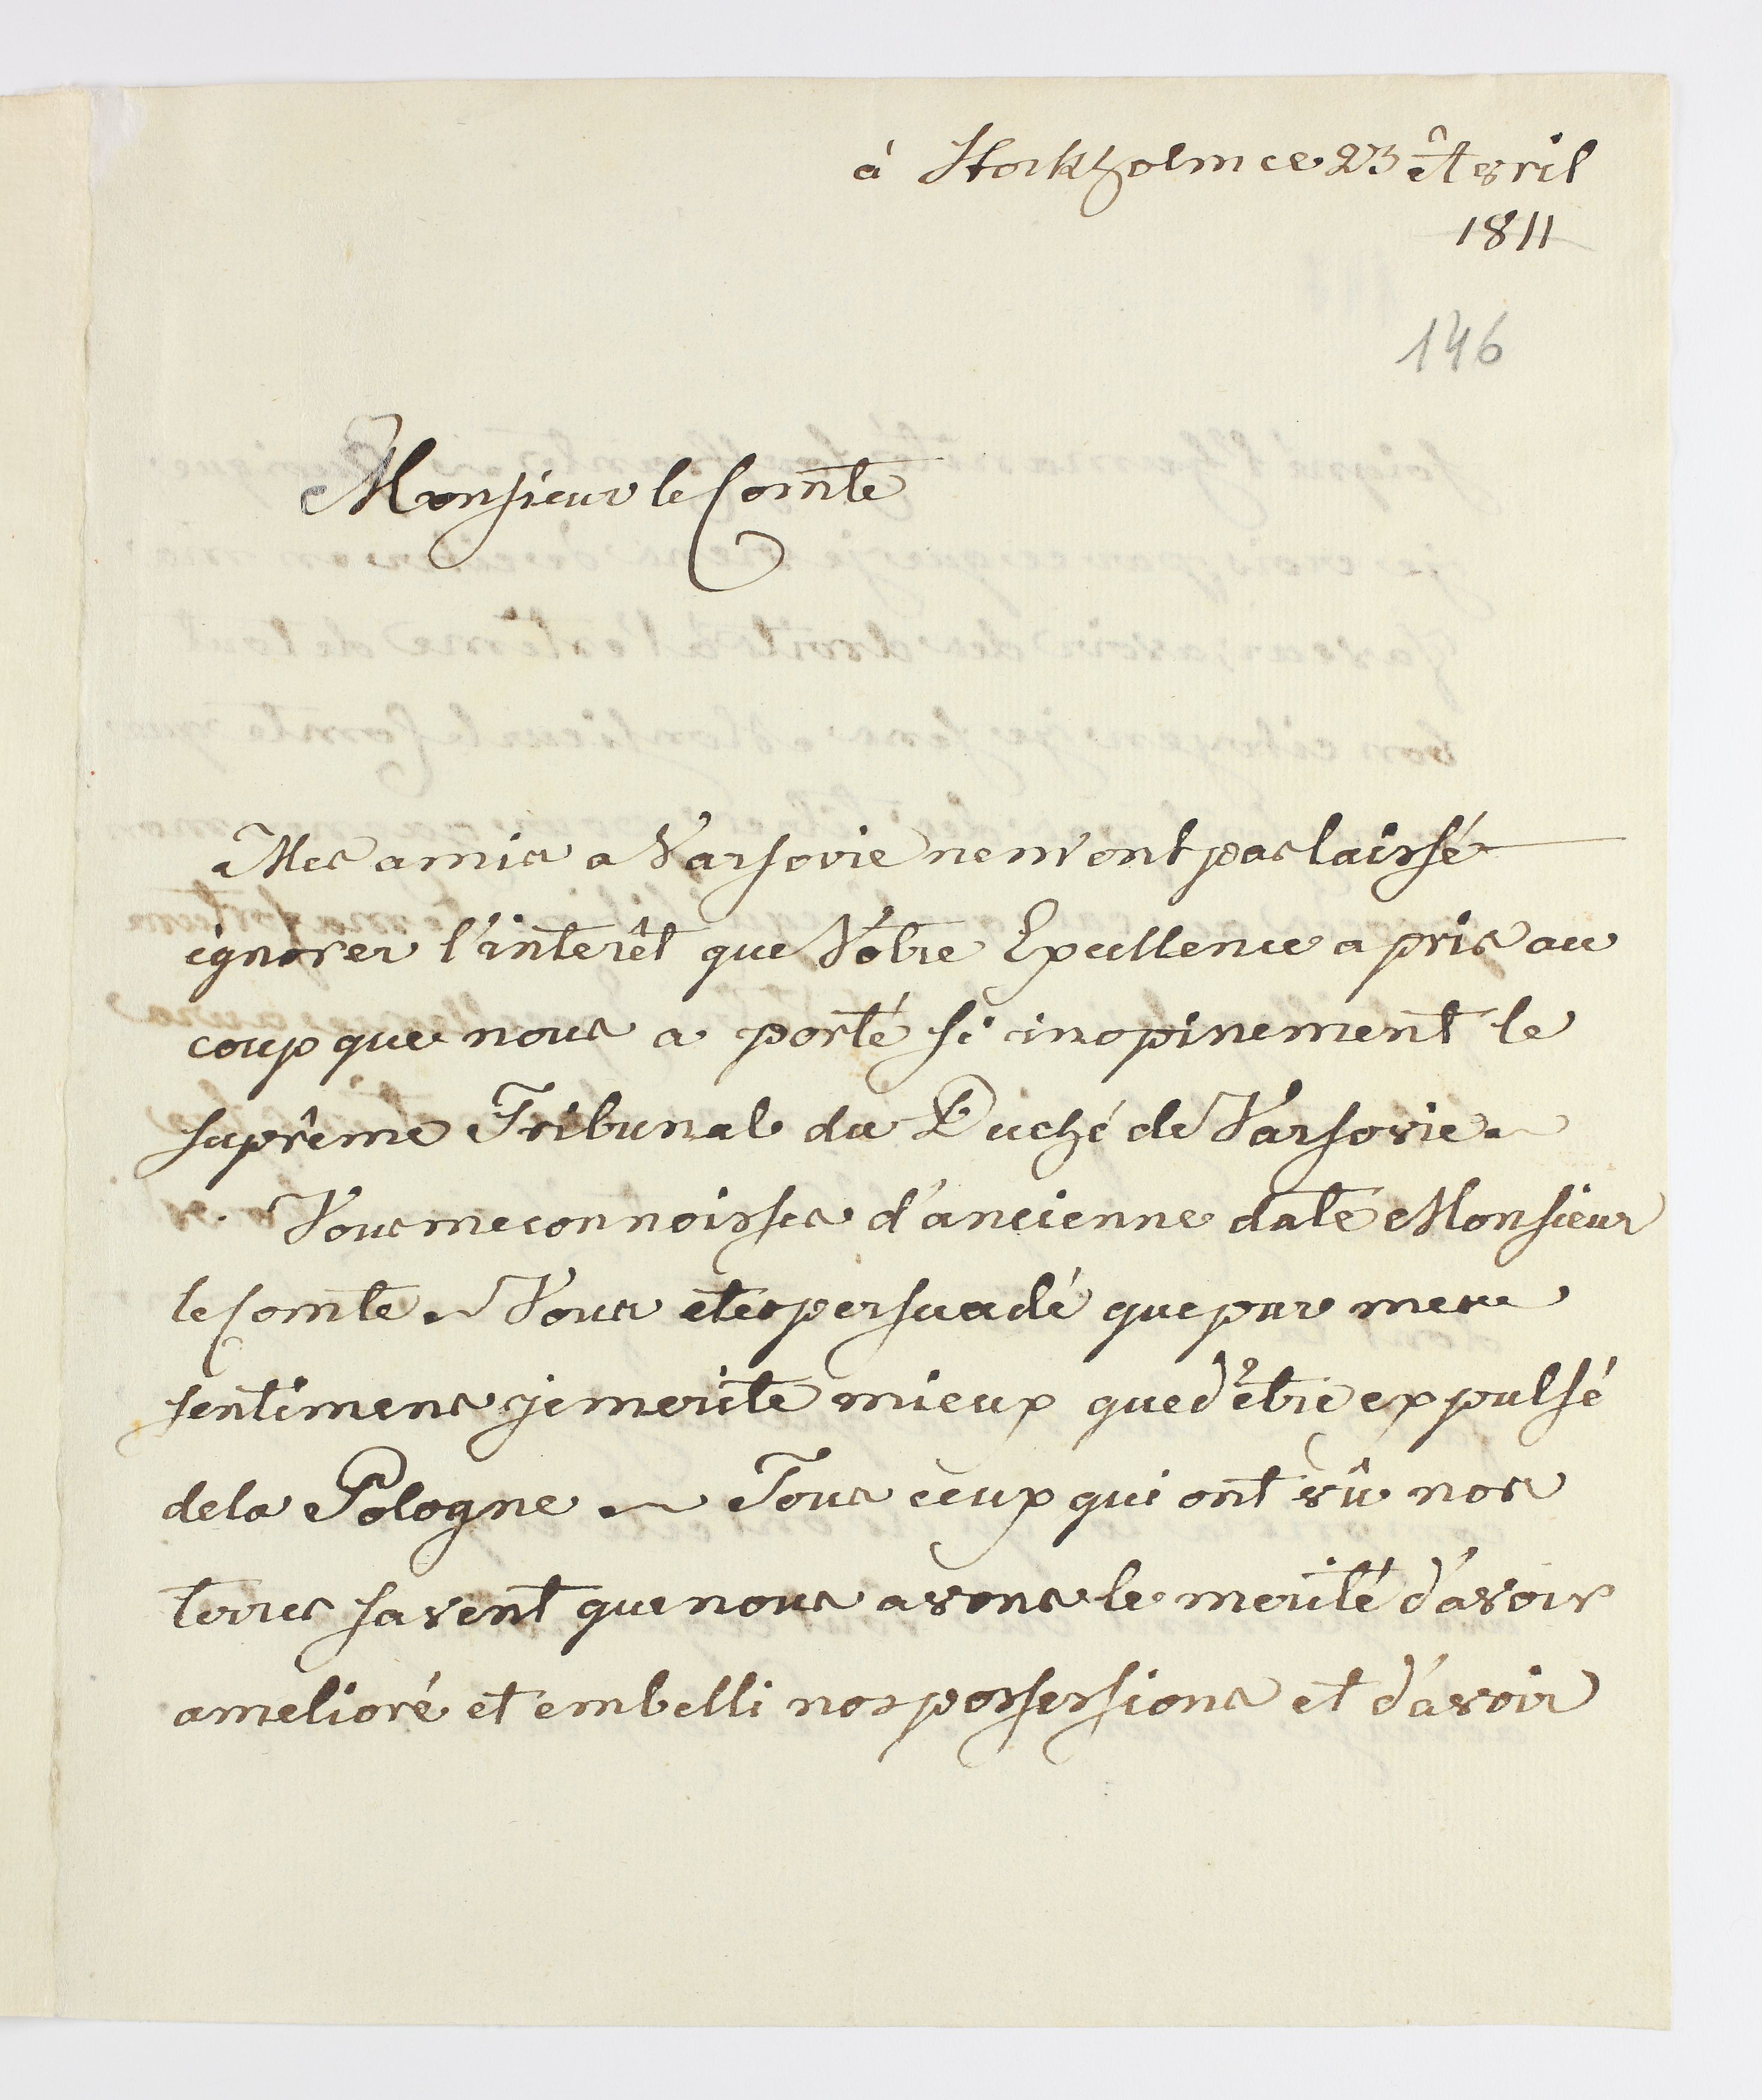 à Stockholm ce 23 Avril
1811
146
Monsieur le Comte
Mes amis a Varsovie ne m'ont pas laissé
ignorer l'interêt que Votre Excellence a pris au
coup que nous a porté si inopinement le
suprême Tribunal du Duché de Varsovie ~
Vous me connoisses d'ancienne date Monsieur
le Comte ~ Vous etes persuadé que par mes
sentimens je merite mieux que d'être expulsé
de la Pologne ~ Tous ceux qui ont vû nos
terres savent que nous avons le merite d'avoir
amelioré et embelli nos possessions et d'avoir